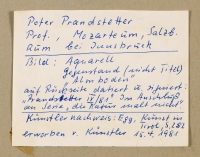 Peter Prandstetter
Prof., Mozarteum, Salzb.
Rum bei Innsbruck
Bild: Aquarell
Gegenstand (nicht Titel)
"Almboden"
auf Rückseite datiert u. signiert:
"Prandstetter IV/81" Im Anschluß
an Serie "die Natur malt nicht"
Künstlernachweis: Egg, Kunst in
Tirol, S. 282
erworben v. Künstler 15.4.1981